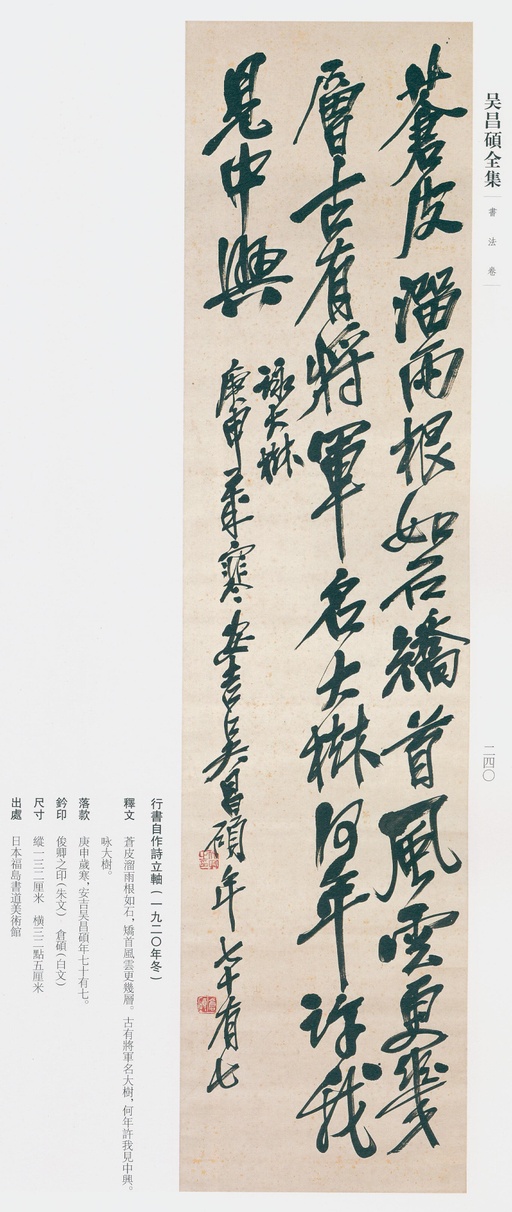 吴昌碩全集
書法卷
二四〇
蒼皮溜雨根如石矯首風雲更幾
層古有將軍名大樹何年許我
見中興
詠大樹
庚申歲寒安吉吳昌碩年七十有七
行書自作詩立軸（一九二〇年冬）
釋文　蒼皮溜雨根如石，矯首風雲更幾層。古有將軍名大樹，何年許我見中興。
咏大樹。
落款　庚申歲寒，安吉吴昌碩年七十有七。
鈐印　俊卿之印（朱文）　倉碩（白文）
尺寸　縱一三二厘米　橫三二點五厘米
出處　日本福島書道美術館